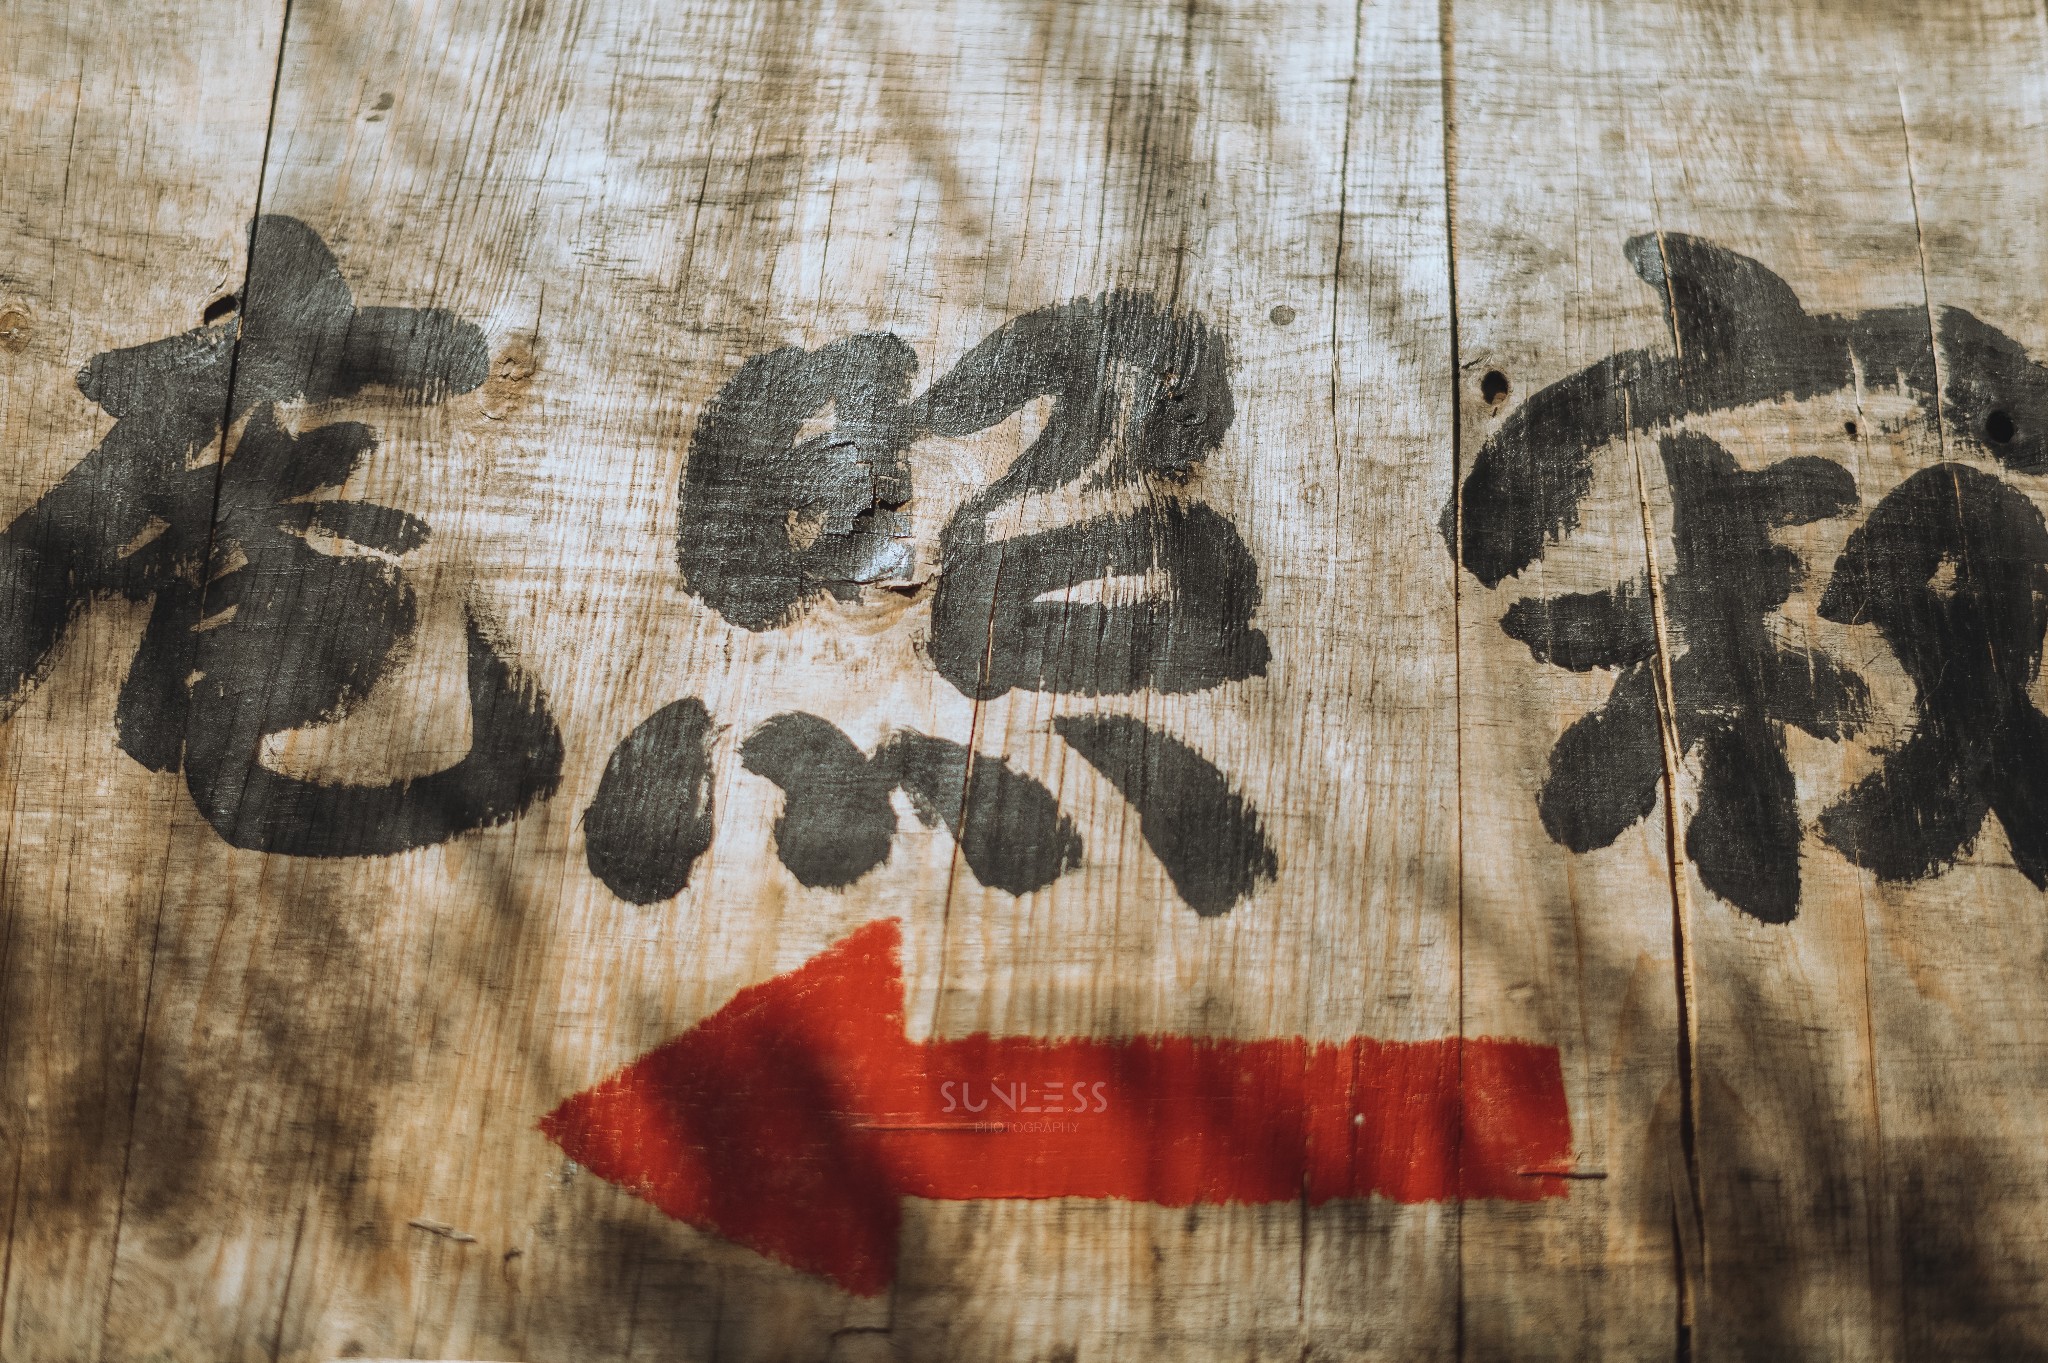 寂照庵
SUNLESS
PHOTOGRAPHY